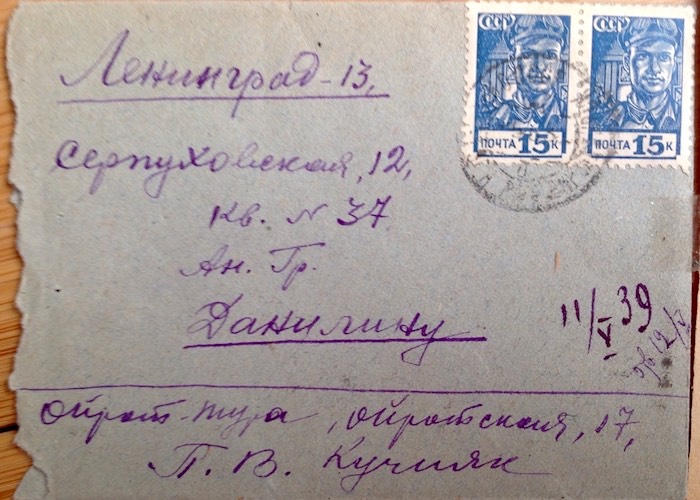 СССР СССР
ПОЧТА 15 К ПОЧТА 15 К
Ленинград-13,
Серпуховская, 12,
Кв. N 37
Ан. Гр.
Данилину
11/V 39
Ойрот-Тура, Ойротская, 17,
П. В. Кучияк